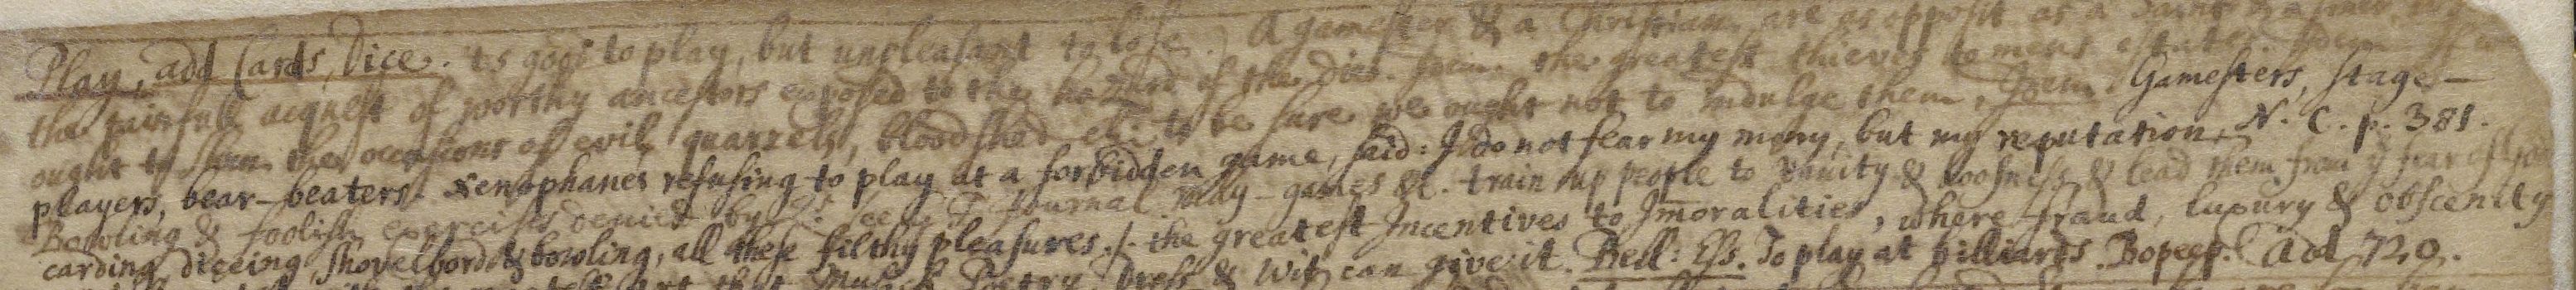 Play, add Cards, Dice. 'ts good to play, but unpleasant to lose. A gamester & a Christian are as opposit as a Saint & a
the painfull acquest of worthy ancestors exposed to the hazard of the Dies. Idem. the greatest thieves to mens estates Idem. If we
ought to shun the occasions of evil, quarrels, bloodshed etc: to be sure we ought not to indulge them, Idem. Gamesters, stage-
players, bear-beaters. Xenophanes refusing to play at a forbidden game, said: I do not fear my mony, but my reputation, N. C. p. 381.
Bowling & foolish exercises denied by Journal. may-games &c. train up people to Vanity & loosness & lead them from ye fear of God
carding, diceing, shovelbord & bowling, all these filthy pleasures ./. the greatest Incentives to Imoralities, where fraud, luxury & obscenity
Musick, Poetry, Dress & Wit can give it. Bell: Ess. To play at billiards. Bopeep. Add 720.